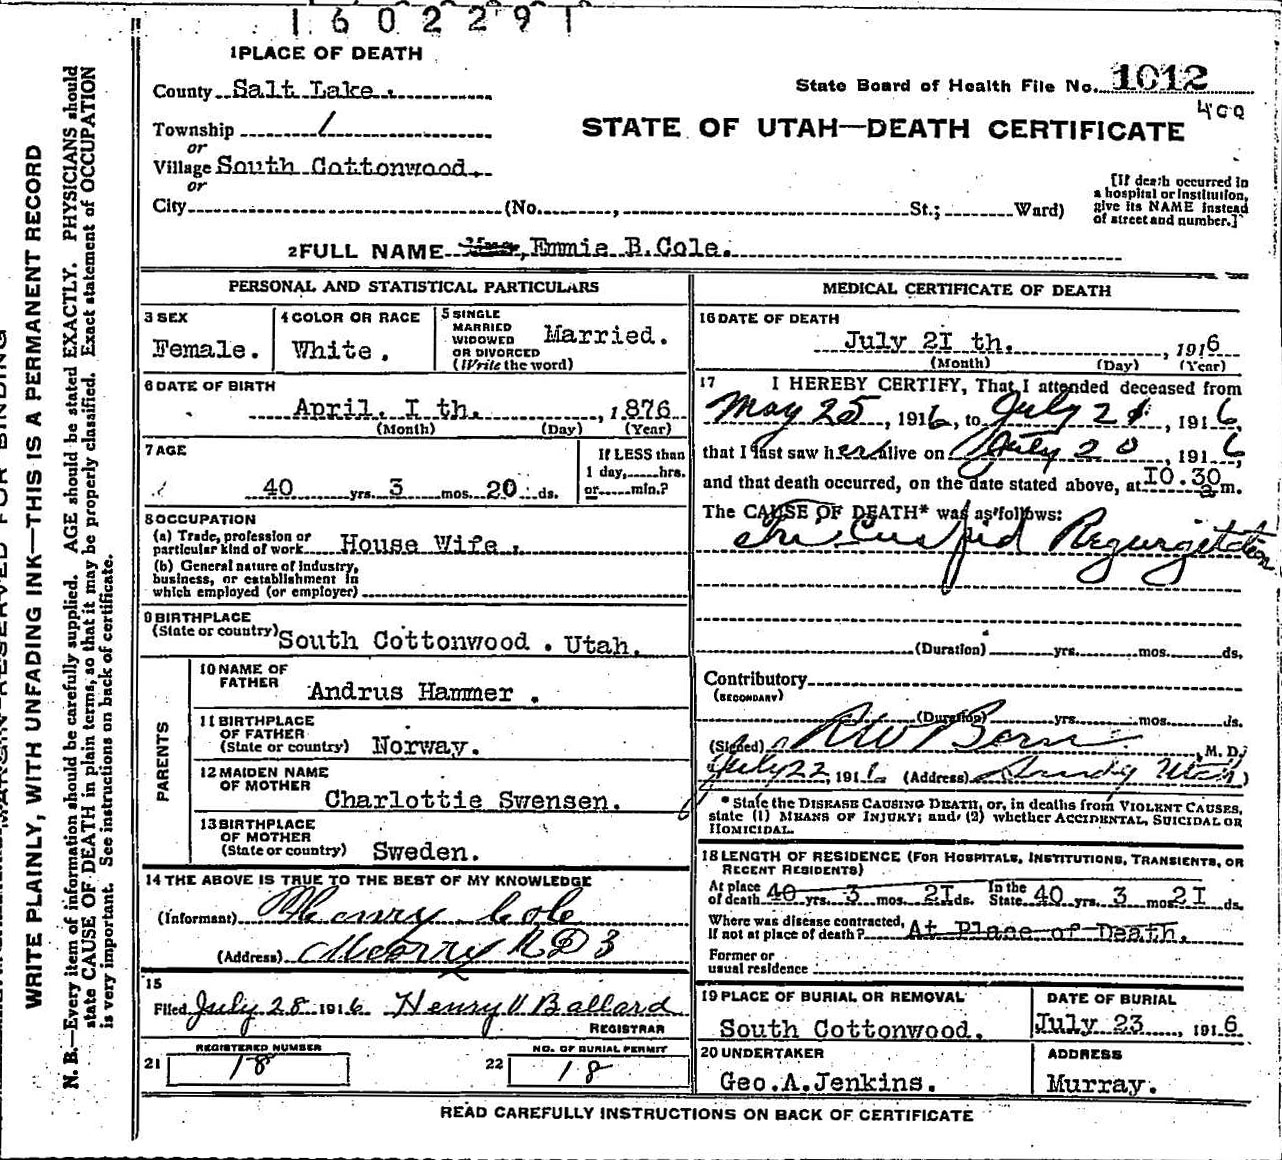 1602291
1 PLACE OF DEATH
County Salt Lake.
State Board of Health File No. 1012
Township /
400
STATE OF UTAH—DEATH CERTIFICATE
or
Village South Cottonwood.
or
[If death occurred in
a hospital or institution,
give its NAME instead
of street and number.]
City (No. , St.; Ward)
2 FULL NAME , Emmie B.Cole.
PERSONAL AND STATISTICAL PARTICULARS
3 SEX
Female.
4 COLOR OR RACE
White.
5 SINGLE
MARRIED
WIDOWED
OR DIVORCED
(Write the word)
Married.
6 DATE OF BIRTH
April. I th. , 1876
(Month) (Day) (Year)
7 AGE
40 yrs. 3 mos. 20 ds.
If LESS than
1 day, hrs.
or min.?
8 OCCUPATION
(a) Trade, profession or
particular kind of work House Wife.
(b) General nature of industry,
business, or establishment in
which employed (or employer)
9 BIRTHPLACE
(State or country) South Cottonwood. Utah.
PARENTS
10 NAME OF
FATHER
Andrus Hammer.
11 BIRTHPLACE
OF FATHER
(State or country) Norway.
12 MAIDEN NAME
OF MOTHER
Charlottie Swensen.
13 BIRTHPLACE
OF MOTHER
(State or country) Sweden.
14 THE ABOVE IS TRUE TO THE BEST OF MY KNOWLEDGE
(Informant) Henry Cole
(Address) R D 3
15
Filed July 28 1916 Henry V Ballard
REGISTRAR
REGISTERED NUMBER
21 18
NO. OF BURIAL PERMIT
22 18
MEDICAL CERTIFICATE OF DEATH
16 DATE OF DEATH
July 2I th. , 1916
(Month) (Day) (Year)
17 I HEREBY CERTIFY, That I attended deceased from
May 25, 1916, to July 21, 1916,
that I last saw her alive on July 20, 1916,
and that death occurred, on the date stated above, at I0.30 a m.
The CAUSE OF DEATH* was as follows:
Tri Cuspid Regurgitation
(Duration) yrs. mos. ds.
Contributory
(SECONDARY)
(Duration) yrs. mos. ds.
(Signed) , M. D.
July 22, 1916 (Address) Sandy Utah
* State the DISEASE CAUSING DEATH, or, in deaths from VIOLENT CAUSES,
state (1) MEANS OF INJURY; and (2) whether ACCIDENTAL, SUICIDAL OR
HOMICIDAL.
18 LENGTH OF RESIDENCE (FOR HOSPITALS, INSTITUTIONS, TRANSIENTS, OR
RECENT RESIDENTS)
At place
of death 40 yrs. 3 mos. 2I ds.
In the
State 40 yrs. 3 mos. 2I ds.
Where was disease contracted,
If not at place of death? At Place of Death.
Former or
usual residence
19 PLACE OF BURIAL OR REMOVAL
South Cottonwood.
DATE OF BURIAL
July 23, 1916
20 UNDERTAKER
Geo.A.Jenkins.
ADDRESS
Murray.
READ CAREFULLY INSTRUCTIONS ON BACK OF CERTIFICATE
MARGIN RESERVED FOR BINDING
WRITE PLAINLY, WITH UNFADING INK—THIS IS A PERMANENT RECORD
N. B.—Every item of information should be carefully supplied. AGE should be stated EXACTLY. PHYSICIANS should
state CAUSE OF DEATH in plain terms, so that it may be properly classified. Exact statement of OCCUPATION
is very important. See instructions on back of certificate.